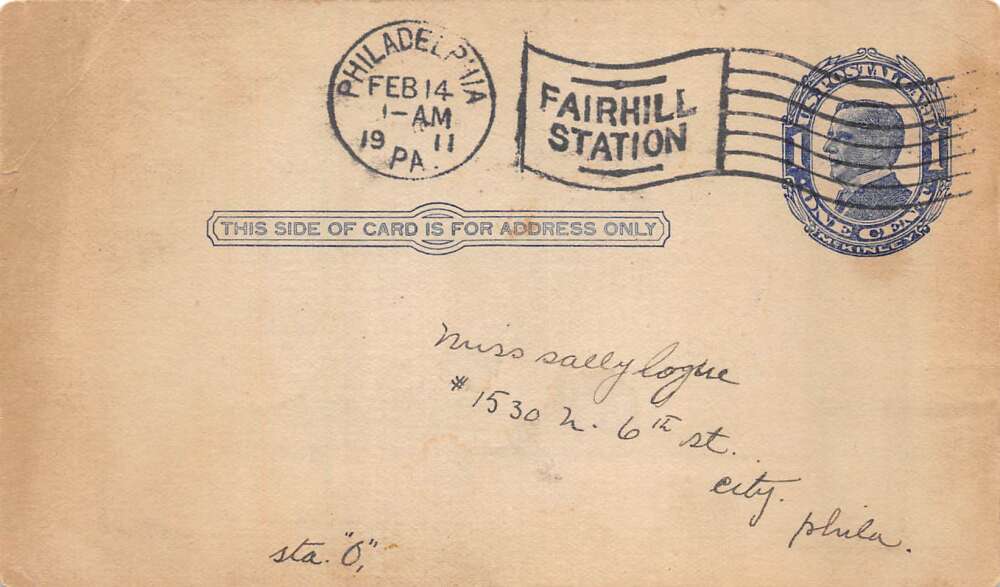 PHILADELPHIA
FEB 14
1-AM
19 11
PA.
FAIRHILL
STATION
U.S. POSTAL CARD
1 1
ONE CENT
McKINLEY
THIS SIDE OF CARD IS FOR ADDRESS ONLY
Miss Sally Logue
# 1530 N. 6th st.
city.
phila.
sta. "O",